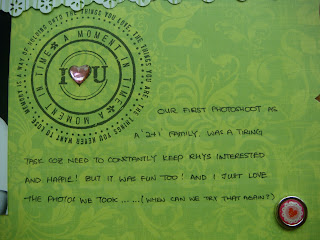 MEMORY IS A WAY OF HOLDING ONTO THE THINGS YOU LOVE, THE THINGS YOU ARE, THE THINGS YOU NEVER WANT TO LOSE.
A MOMENT IN TIME * A MOMENT IN TIME
I ♥ U
OUR FIRST PHOTOSHOOT AS
A '2+1 FAMILY, WAS A TIRING
TASK COZ NEED TO CONSTANTLY KEEP RHYS INTERESTED
AND HAPPIE! BUT IT WAS FUN TOO! AND I JUST LOVE
THE PHOTOS WE TOOK ......(WHEN CAN WE TRY THAT AGAIN?)